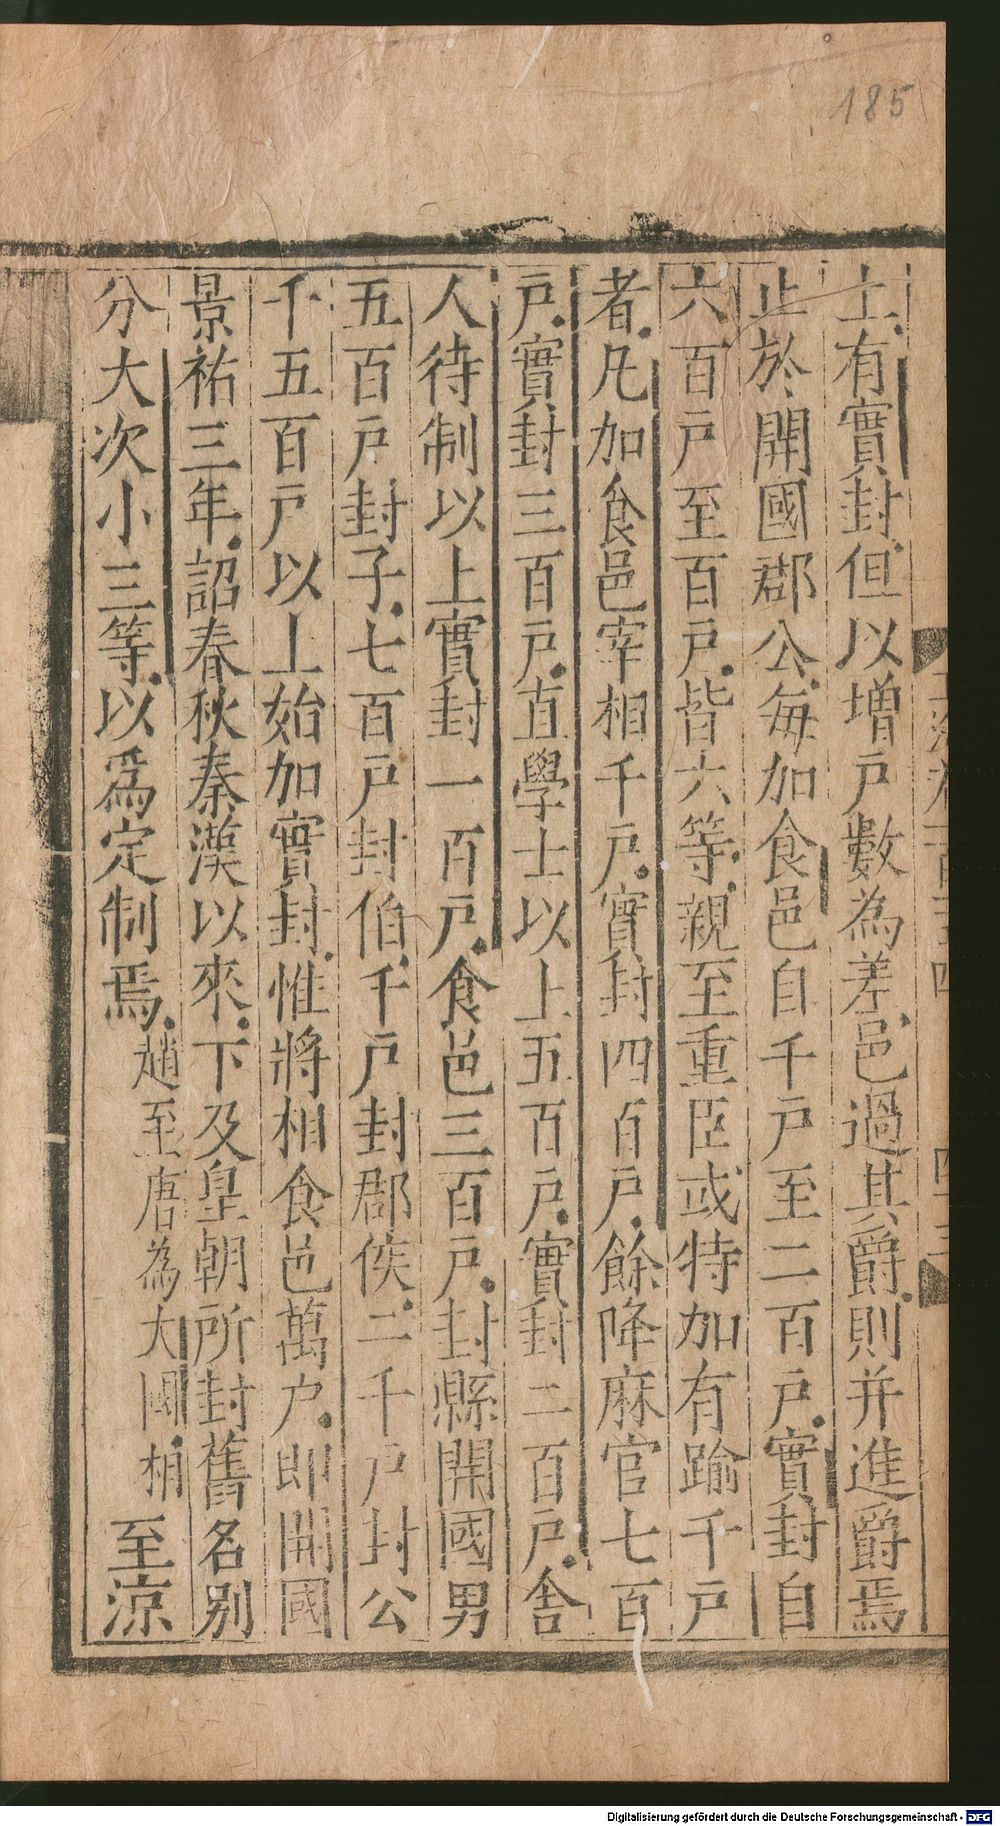 185
士有實封但以增戸數為差邑過其爵則并進爵焉
止於開國郡公每加食邑自千戸至二百戸實封自
六百戸至百戸皆六等親至重臣或特加有踰千戸
者凡加食邑宰相千戸實封四百戸餘降麻官七百
戸實封三百戸直學士以上五百戸實封二百戸舎
人待制以上實封一百戸食邑三百戸封縣開國男
五百戸封子七百戸封伯千戸封郡侯二千戸封公
千五百戸以上始加實封惟將相食邑萬户即開國
景祐三年詔春秋秦漢以來下及皇朝所封舊名别
分大次小三等以爲定制焉趙至唐為大國相至涼
Digitalisierung gefördert durch die Deutsche Forschungsgemeinschaft - DFG